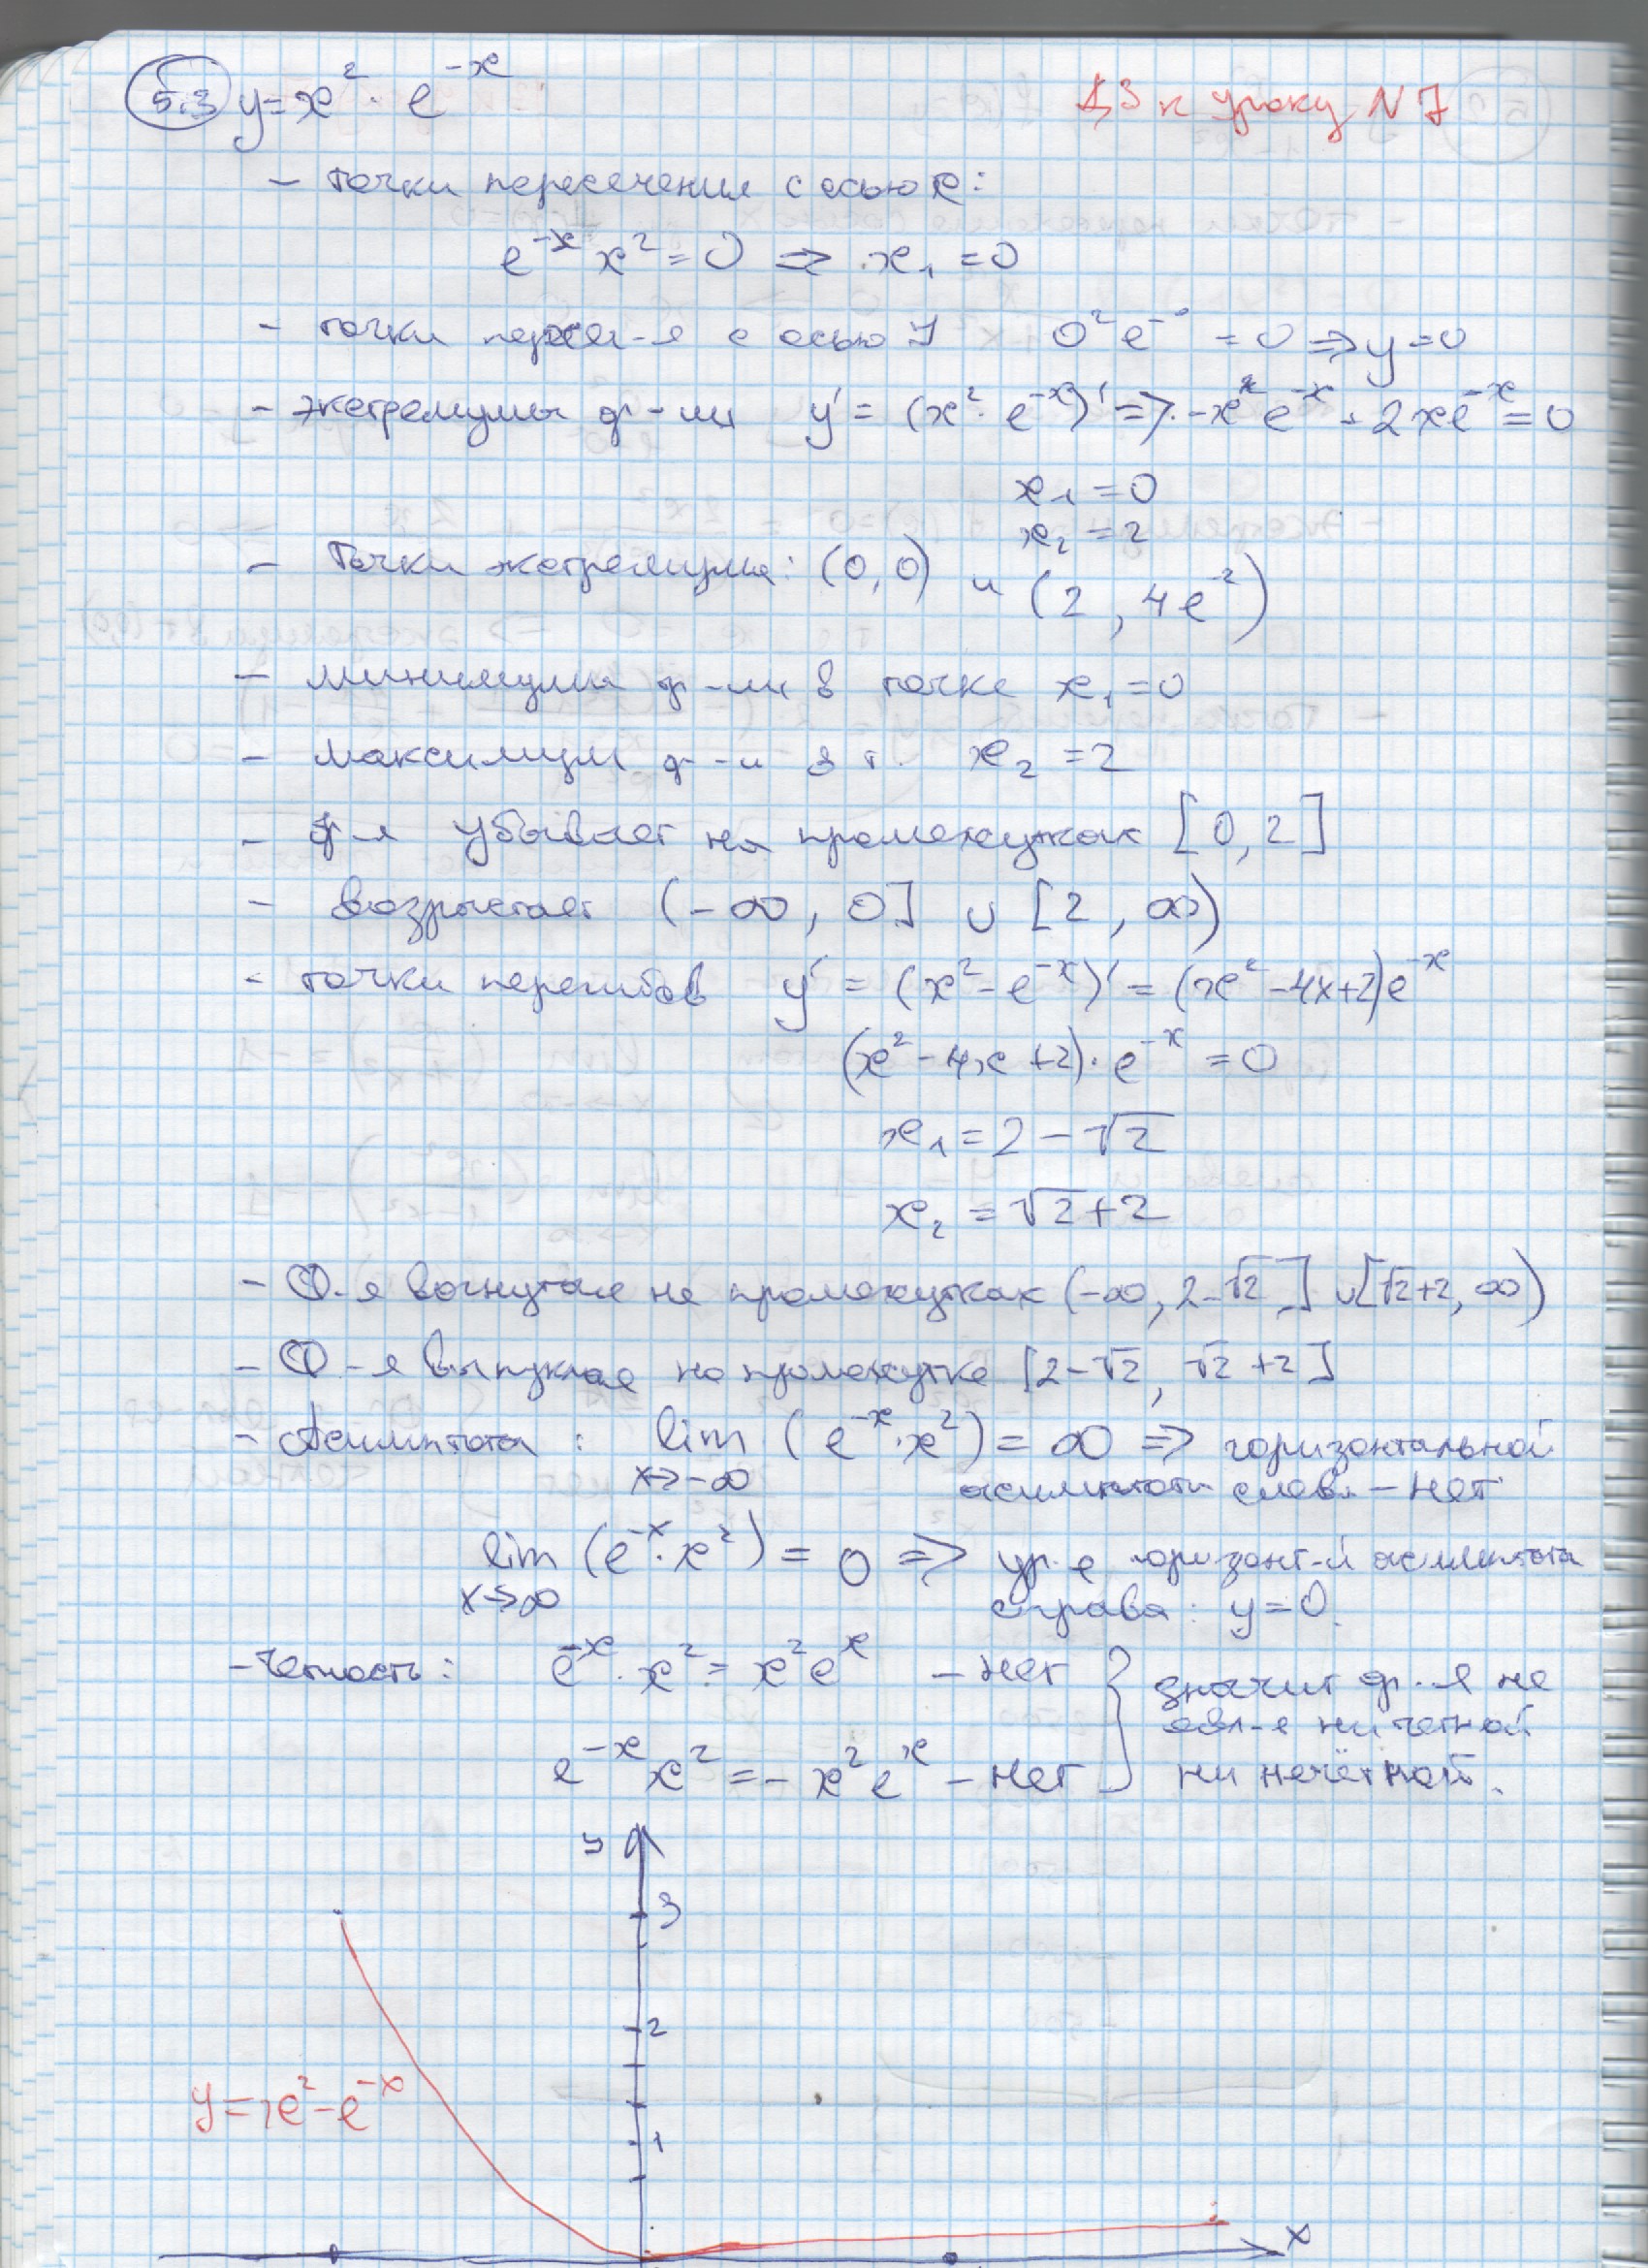 5.3 y = x² · e^-x
ДЗ к уроку N 7
- точки пересечения с осью x:
e^-x x² = 0 => x₁ = 0
- точки перес-я с осью y 0² e^-0 = 0 => y = 0
- экстремумы ф-ии y' = (x² · e^-x)' => -x² e^-x + 2xe^-x = 0
x₁ = 0
x₂ = 2
- Точки экстремума: (0, 0) и (2, 4e^-2)
- минимумы ф-ии в точке x₁ = 0
- максимум ф-и в т. x₂ = 2
- ф-я убывает на промежутках [0, 2]
- возрастает (-∞, 0] ∪ [2, ∞)
- точки перегибов y' = (x² - e^-x)' = (x² - 4x + 2)e^-x
(x² - 4x + 2) · e^-x = 0
x₁ = 2 - √2
x₂ = √2 + 2
- Ф-я вогнутая на промежутках (-∞, 2-√2] ∪ [√2+2, ∞)
- Ф-я выпуклая на промежутке [2-√2, √2+2]
- Асимптота: lim (e^-x · x²) = ∞ => горизонтальной
x→-∞ асимптоты слева - нет
lim (e^-x · x²) = 0 => ур-е горизонт-й асимптота
x→∞ справа: y = 0.
- Четность: e^-x · x² = x² e^x - нет } значит ф-я не
явл-я ни четной
e^-x x² = - x² e^x - нет ни нечётной.
y
3
2
y = x² - e^-x
1
x